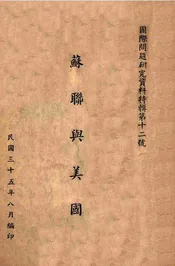 國際問題研究資料特輯第十二號
蘇聯與美國
民國三十五年八月編印